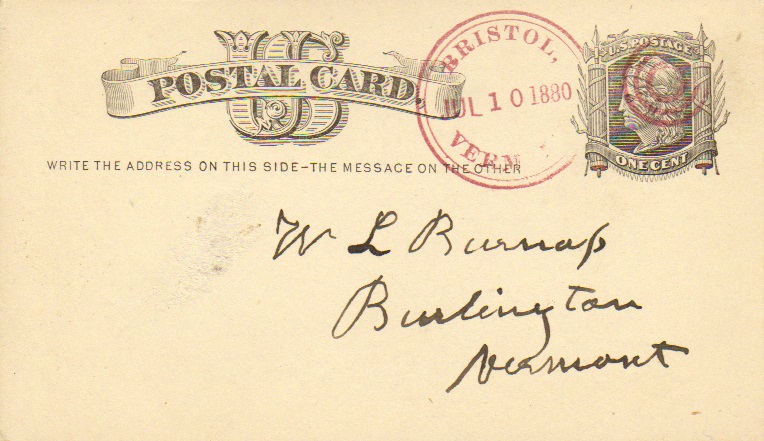 US
POSTAL CARD.
BRISTOL,
JUL 10 1880
VERM
U.S. POSTAGE
ONE CENT
WRITE THE ADDRESS ON THIS SIDE-THE MESSAGE ON THE OTHER
W L Burnap
Burlington
Vermont